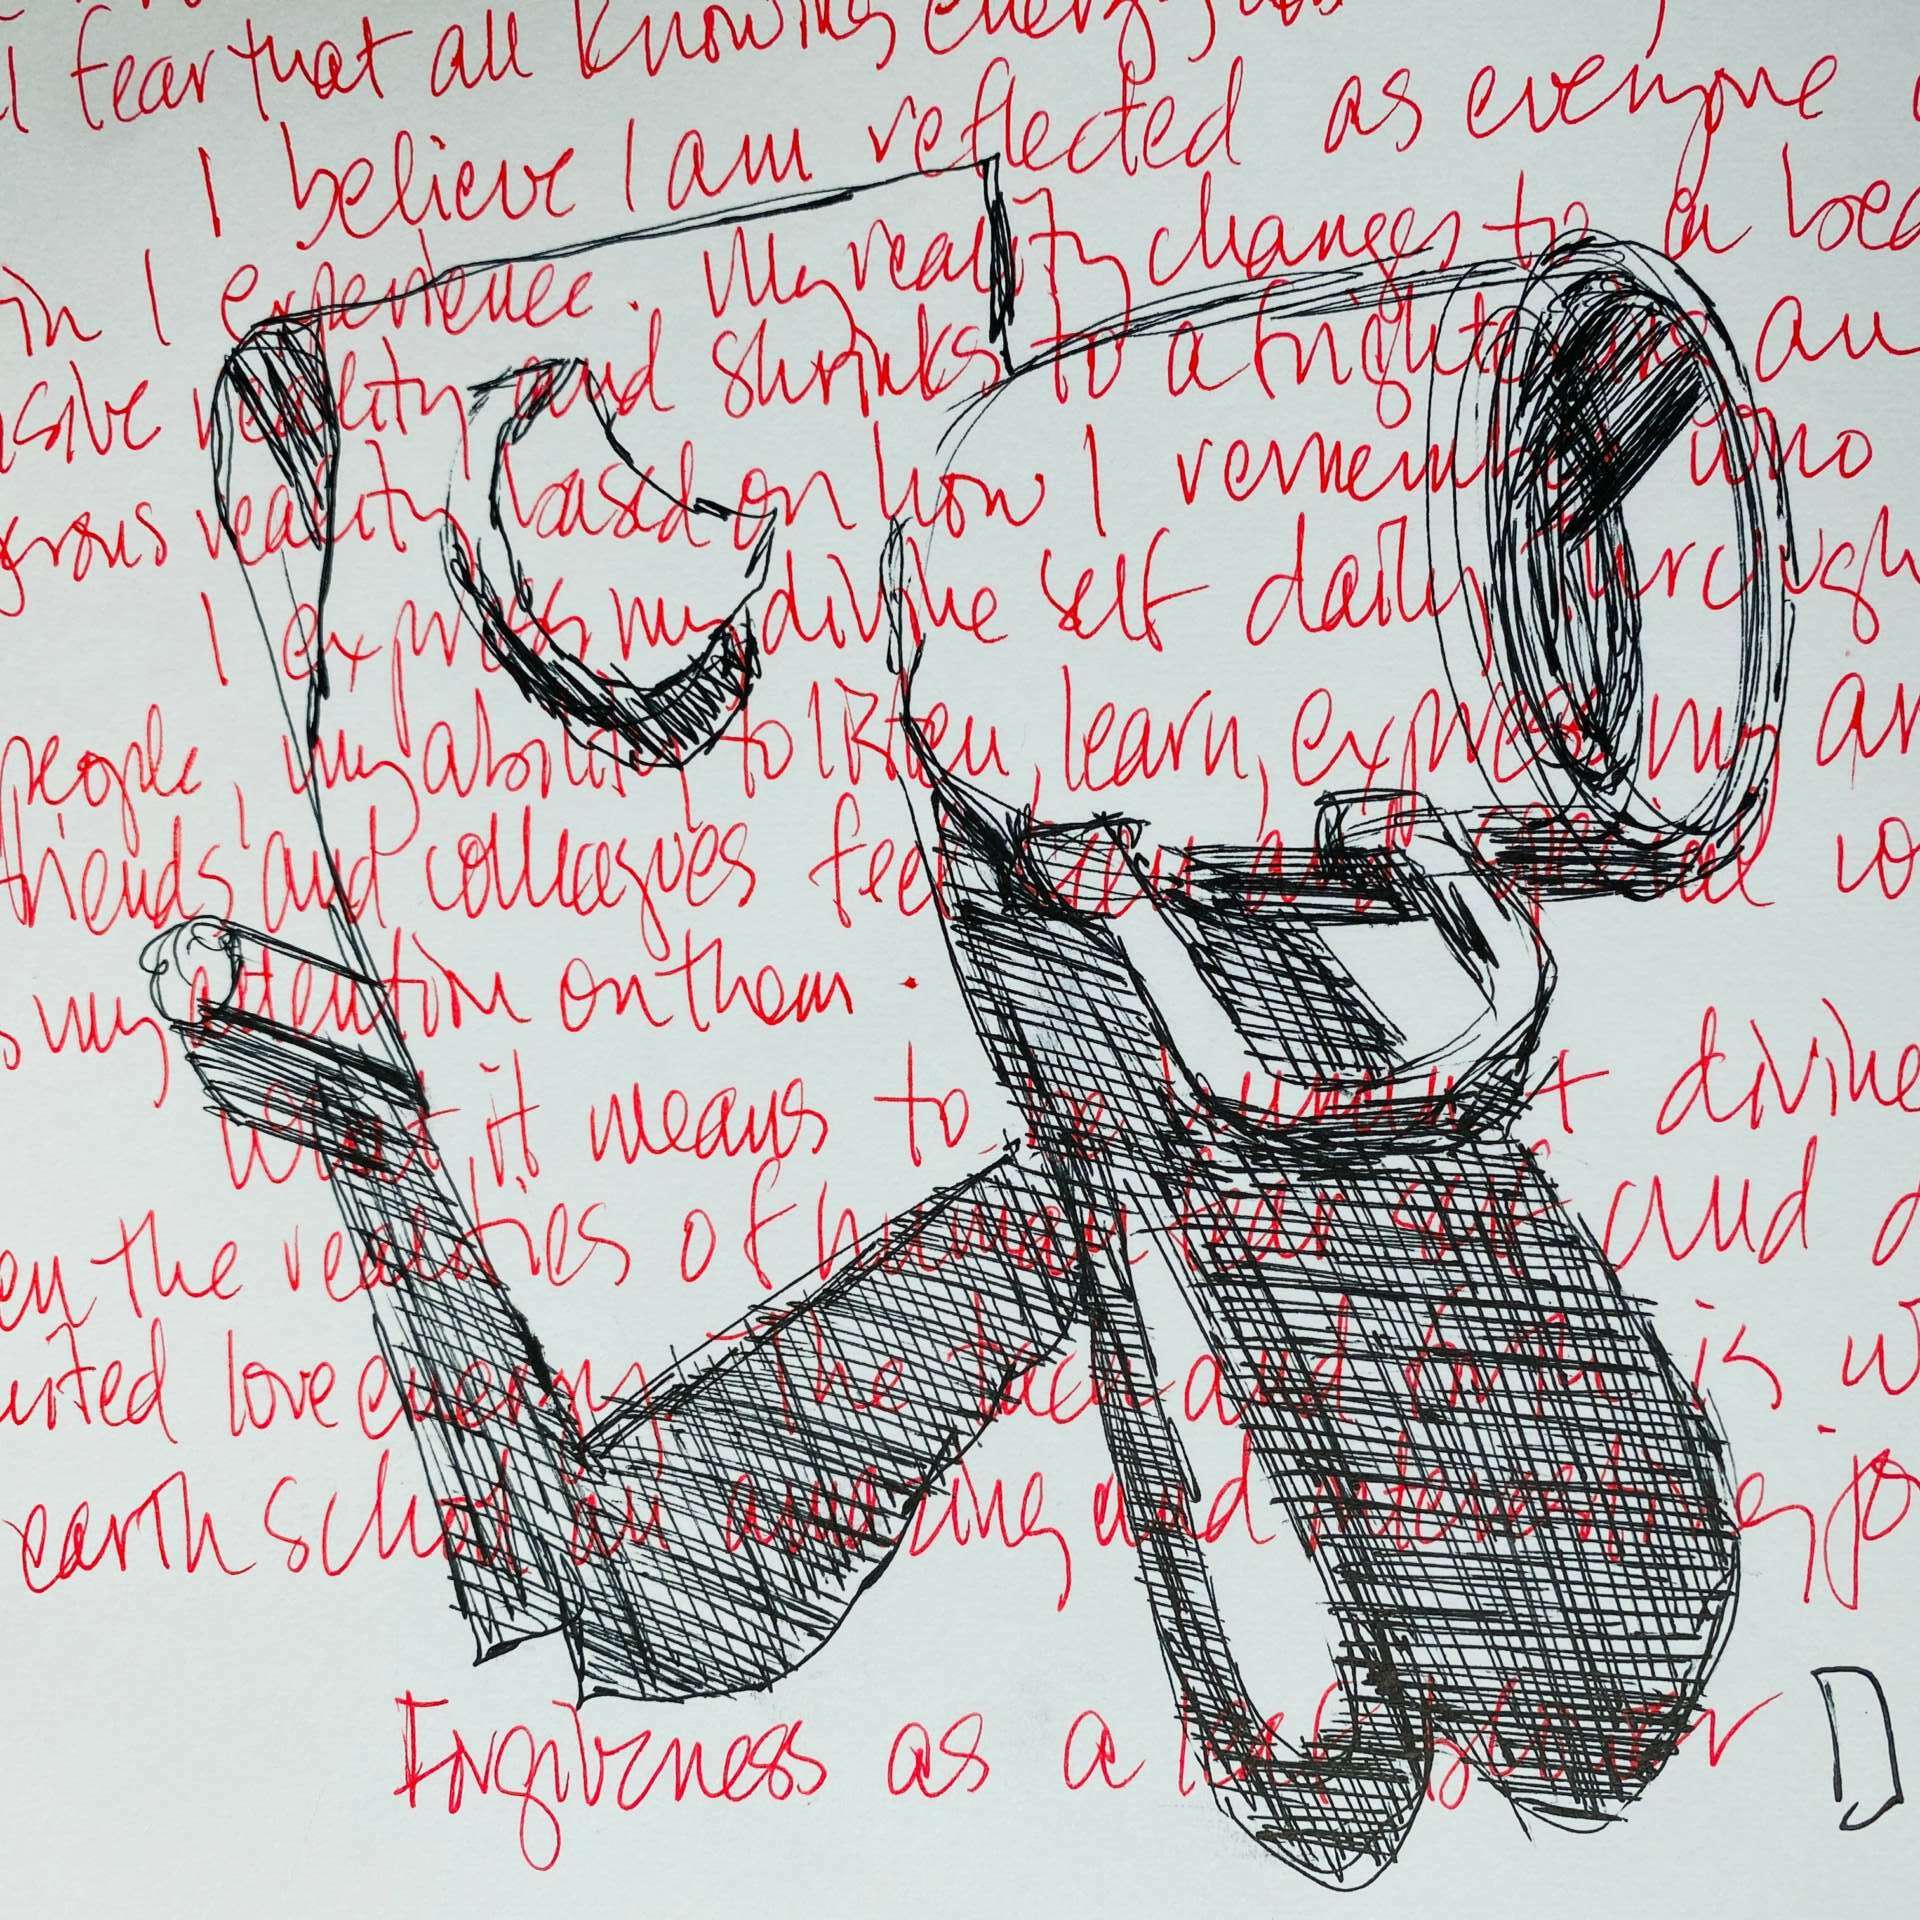 I fear that all knowing energy
I believe I am reflected as everyone
in I experience. My reality changes to a
reality and shrinks to a frightening
reality based on how I remember who
I express my divine self daily through
people, my ability to listen, learn, express my
friends and colleagues feel special
my attention on them.
What it means to divine
the realities of human fear self and
love energy. The is
earth school an amazing and interesting
Forgiveness as a leaf blower D